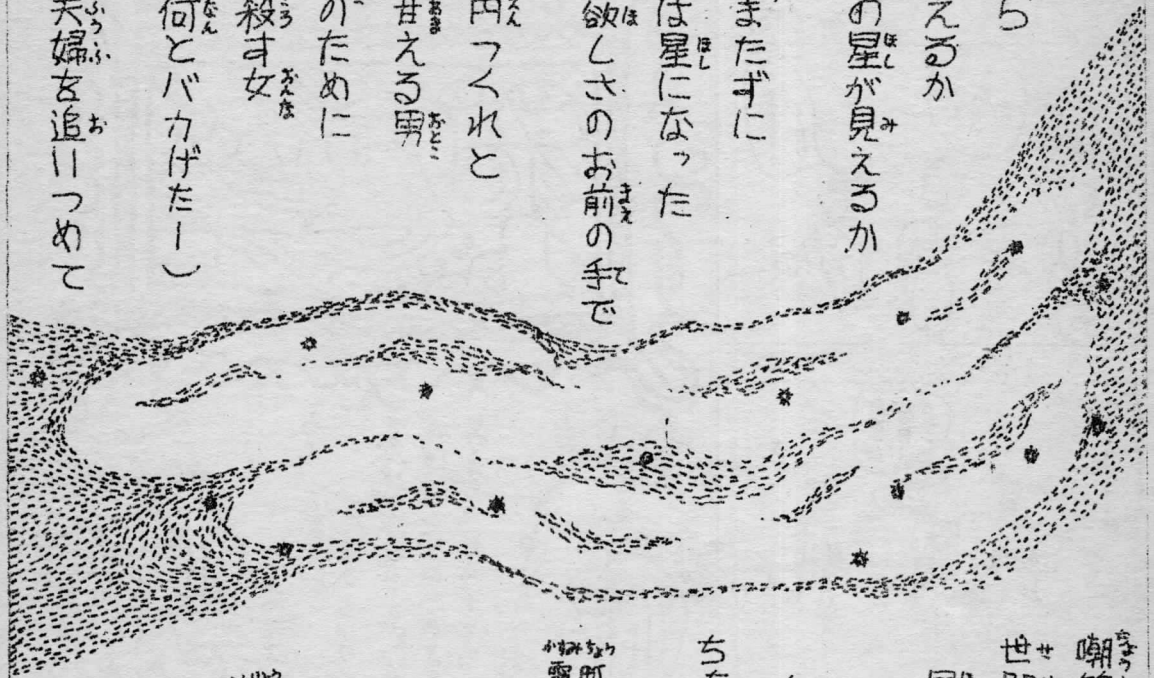 ら
えるか
の星が見えるか
またずに
は星になった
欲しさのお前の手で
円つくれと
甘える男
のために
殺す女
何とバカげたー）
夫婦を追いつめて
嘲
世
ち
霞町